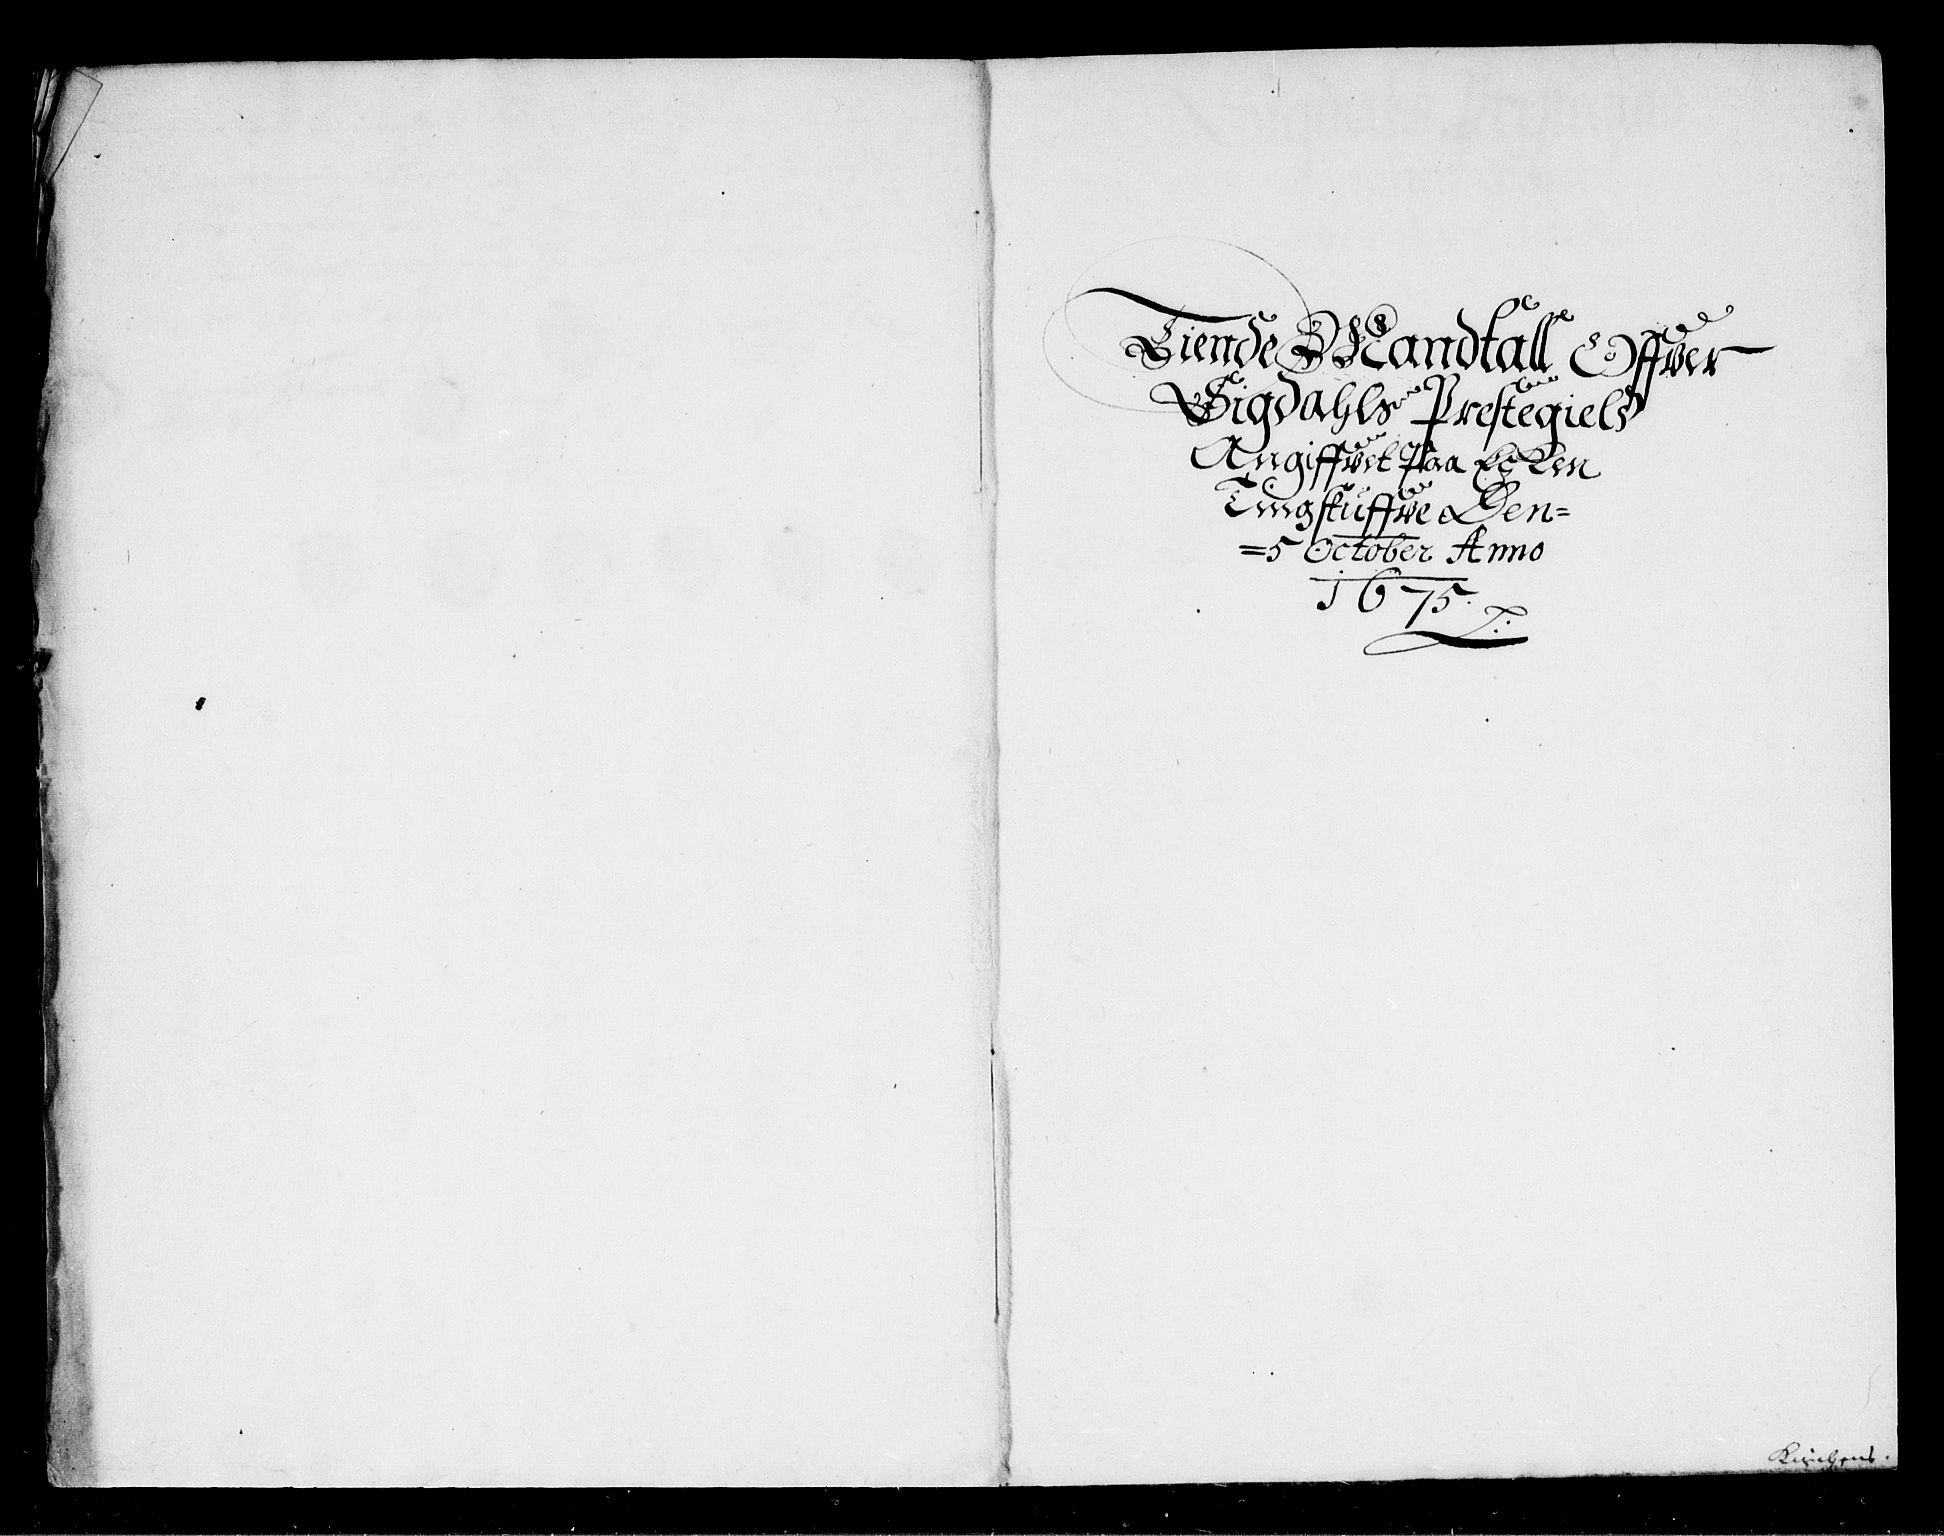 Tiende Mandtall Offver
Sigdahls Prestegiels
Angiffvet Paa
Tingstuffve Den=
=5 October Anno
1675.